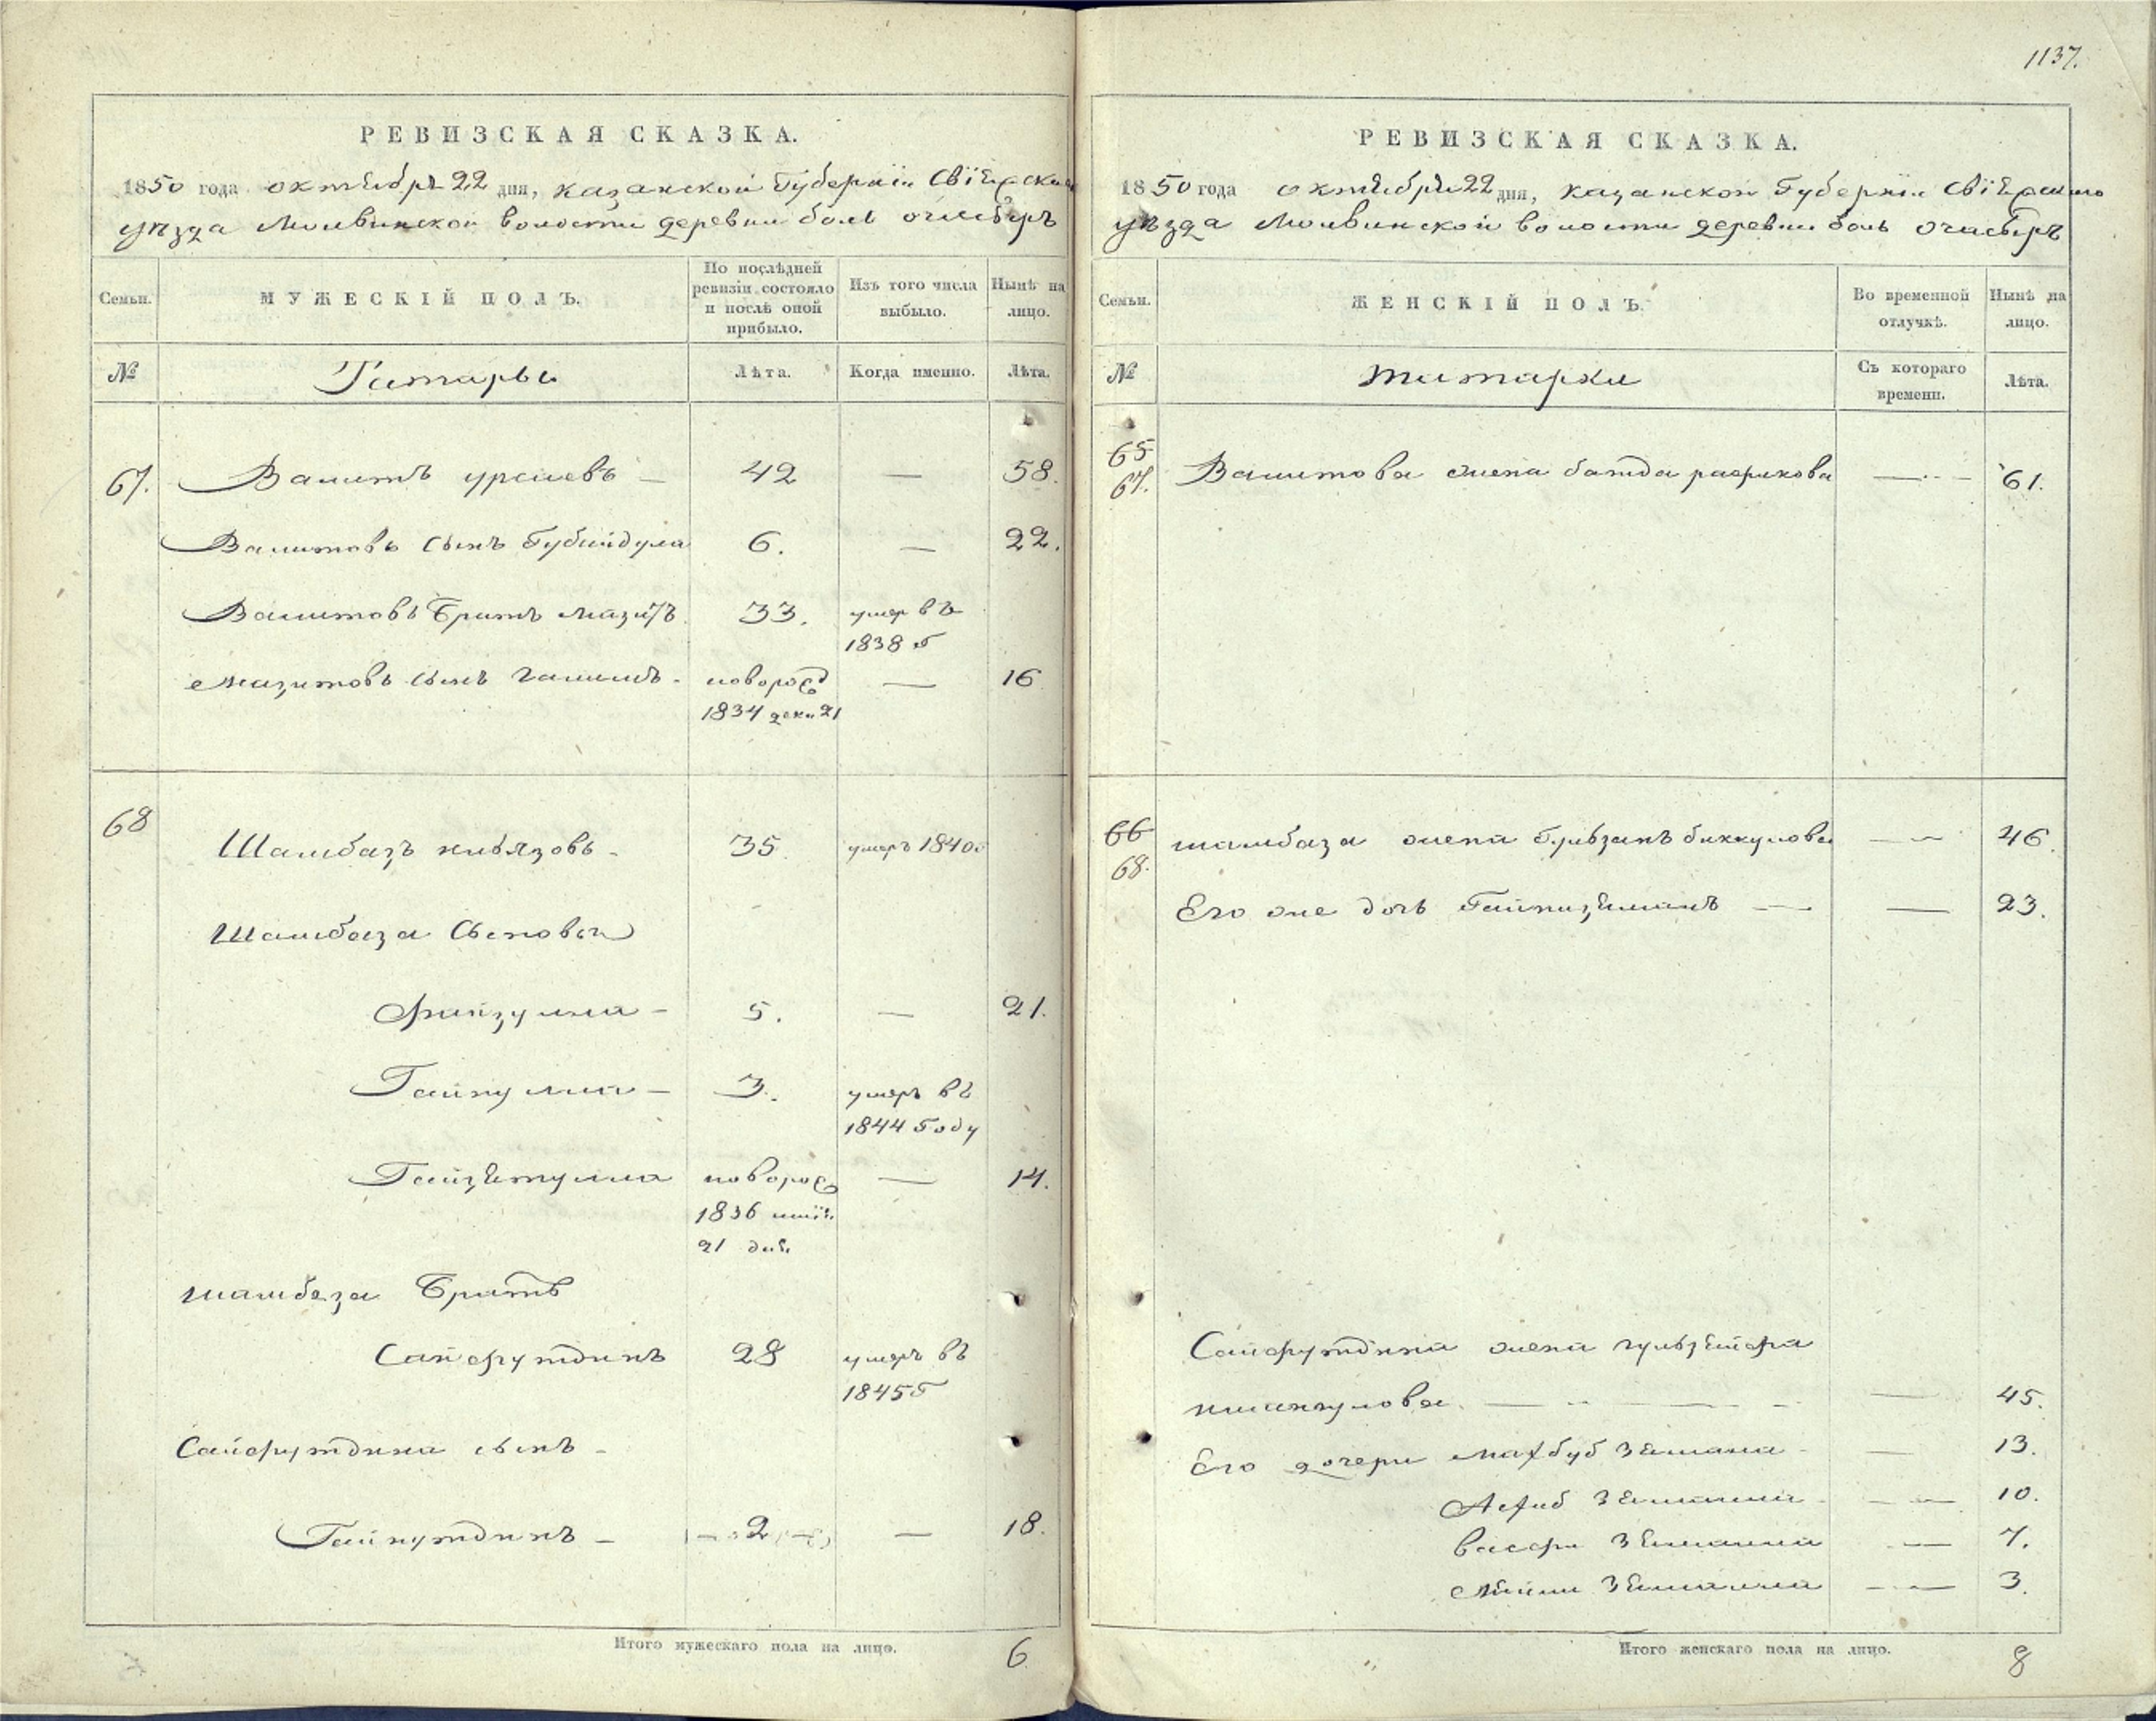 1137.
РЕВИЗСКАЯ СКАЗКА.
1850 года октября 22 дня, казанской Губернiи Свiяжскаго
уѣзда Молвинской волости деревни боль
Семьи.
МУЖЕСКІЙ ПОЛЪ.
По послѣдней ревизіи состояло и послѣ оной прибыло.
Изъ того числа выбыло.
Нынѣ на лицо.
№
Татары
Лѣта.
Когда именно.
Лѣта.
67. Валитъ — 42 — 58.
Валитовъ сынъ Губайдула 6. — 22.
Валитовъ братъ мазитъ 33. умер въ
1838 г
мазитовъ сынъ галимъ - новорож 16
1834 дека 21
68 Шамбазъ князовъ - 35. умеръ 1840
Шамбаза сыновья
Файзулла - 5. — 21.
Гайнулла - 3. умеръ въ
1844 году
Гайзетулла новорож — 14.
1836
21 дня
шамбаза братъ
Сайфутдинъ 28 умеръ въ
1845 г
Сайфутдина сынъ -
Гайнутдинъ - 2 — 18.
Итого мужескаго пола на лицо. 6
РЕВИЗСКАЯ СКАЗКА.
1850 года октября 22 дня, казанской Губернiи Свiяжскаго
уѣзда Молвинской волости деревни боль
Семьи.
ЖЕНСКІЙ ПОЛЪ.
Во временной отлучкѣ.
Нынѣ на лицо.
№
татарки
Съ котораго времени.
Лѣта.
65
67. Валитова жена рафикова — 61.
66 шамбаза жена биккулова — 46.
68.
Его же дочь Гайниземанъ — 23.
Сайфутдина жена гульзейфа
— 45.
Его дочери махбуб Земана - — 13.
Земанна — 10.
васфи Земанна — 7.
Земанна — 3.
Итого женскаго пола на лицо. 8